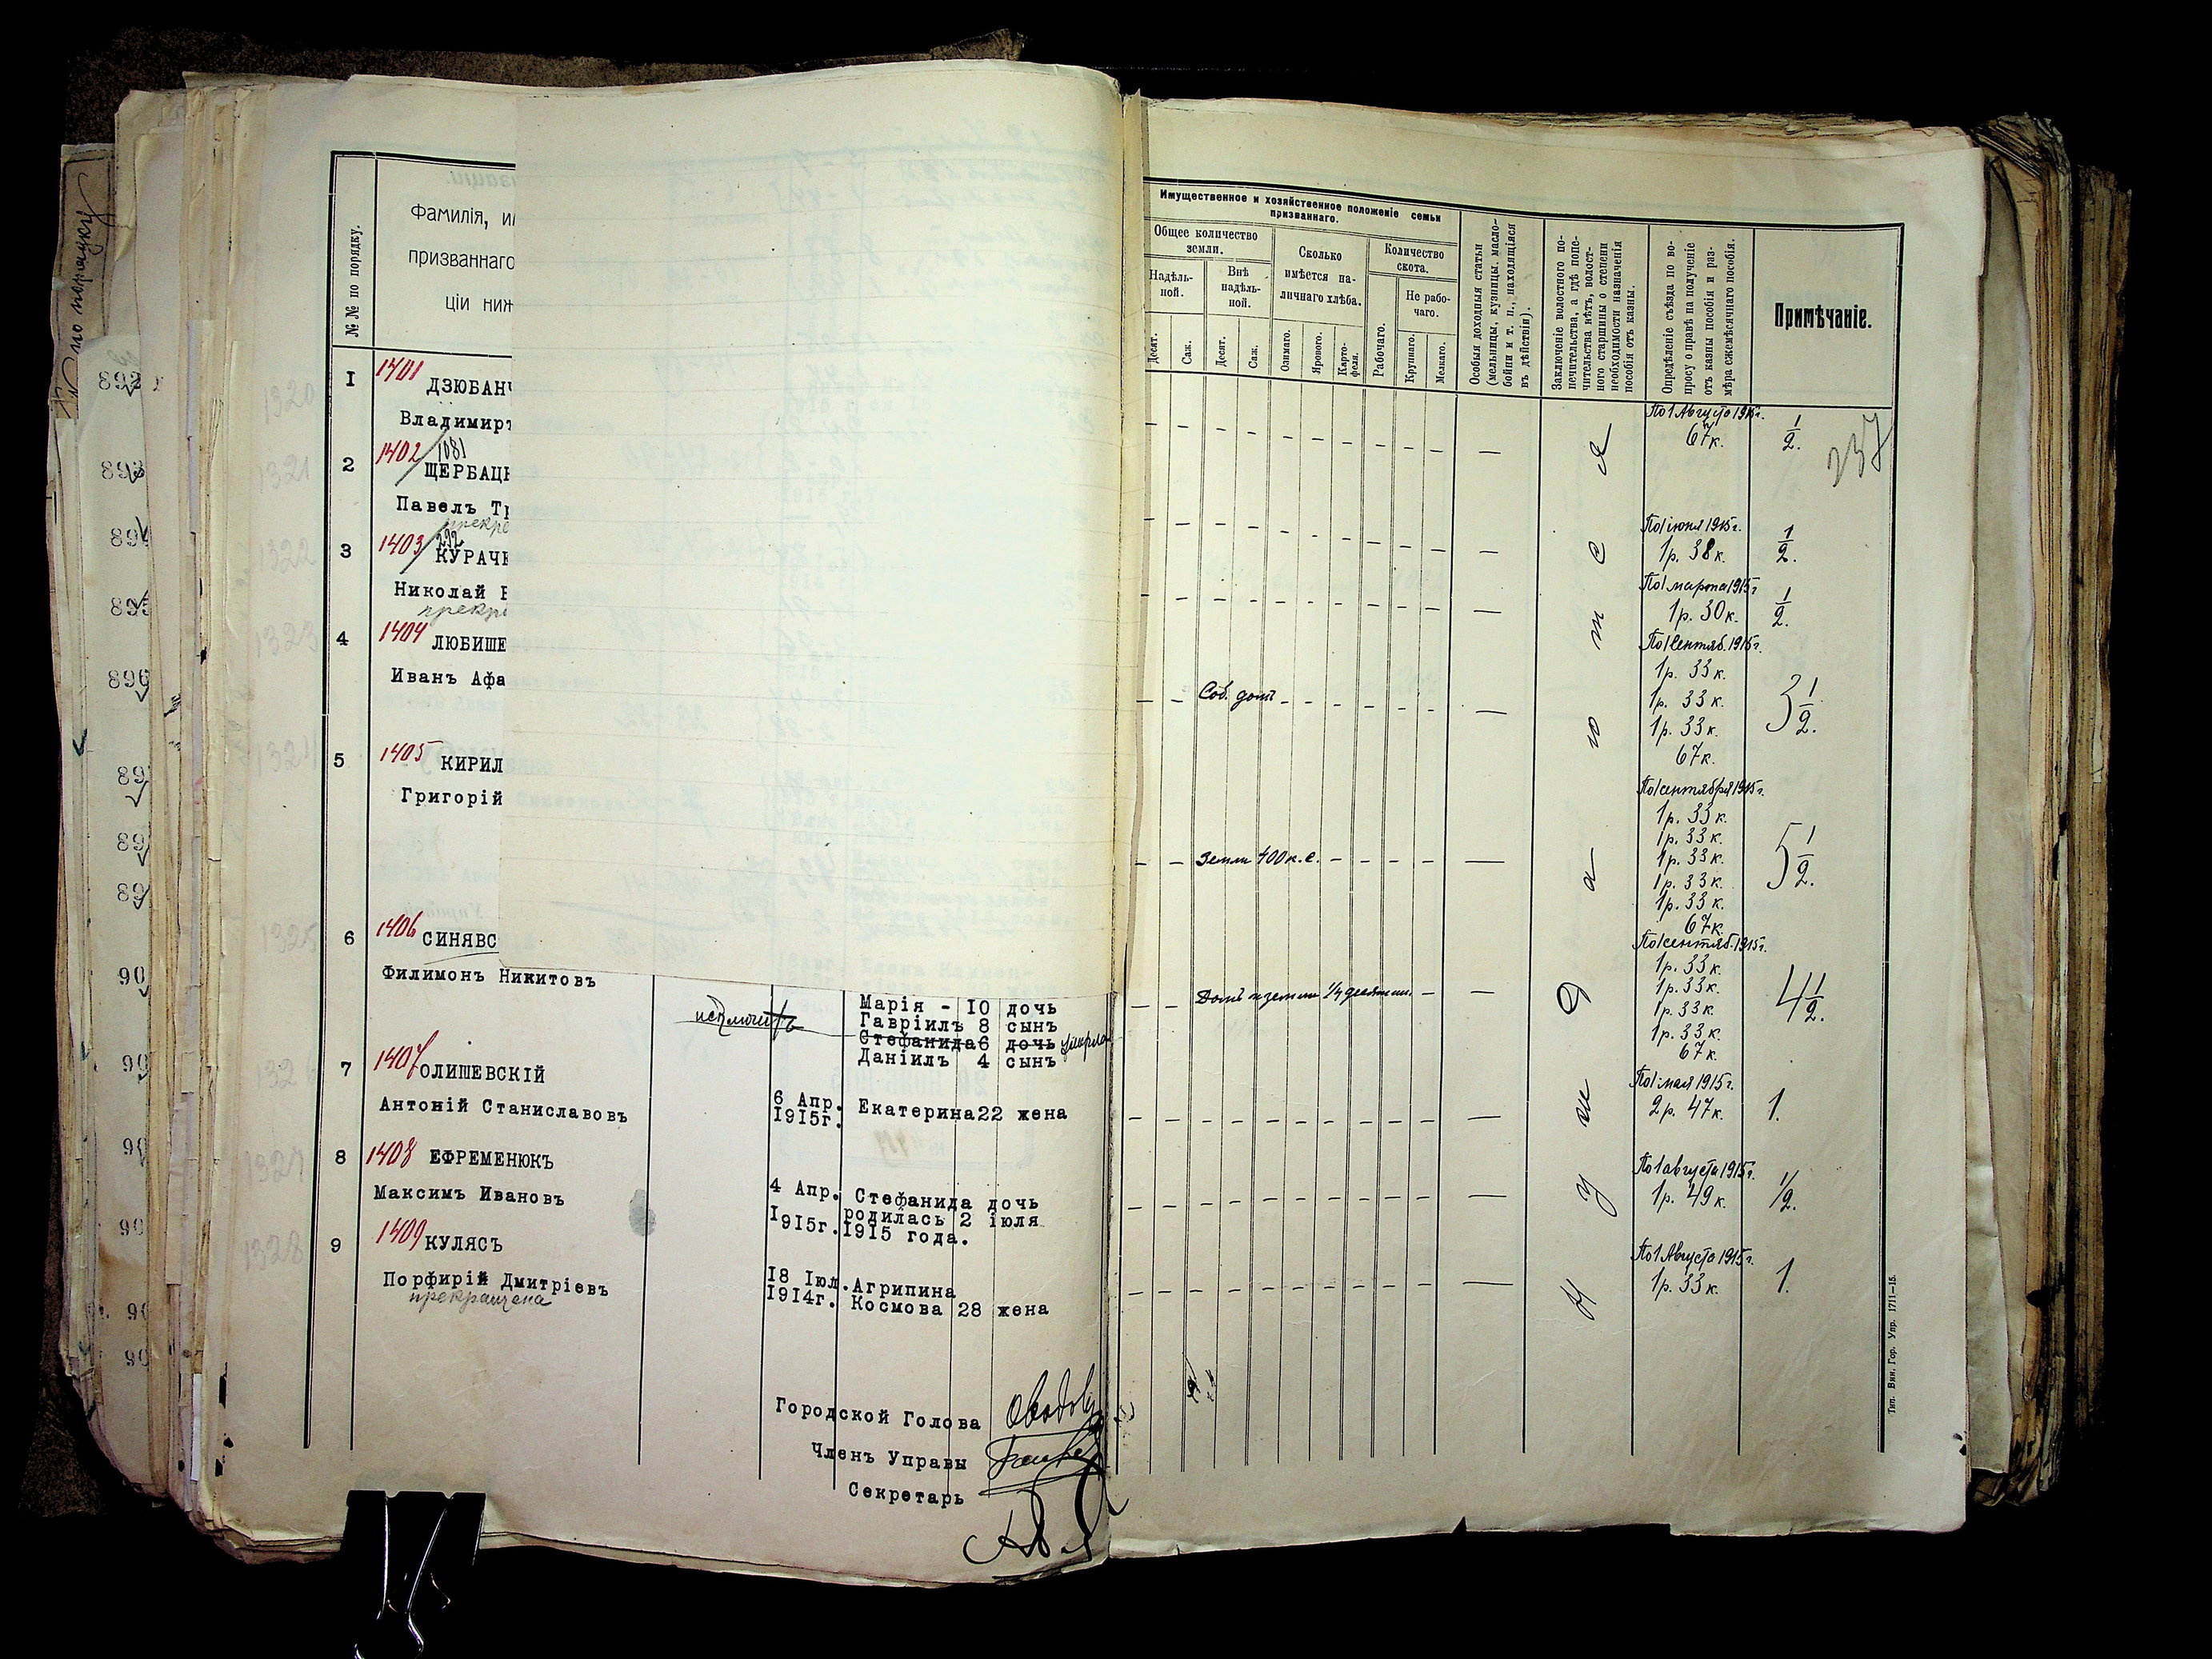 № по порядку
№№ по порядку.
Фамилія, и
призваннаго
ціи ниж
I 1401 ДЗЮБАНЧ
Владимиръ
2 1402/1081 ЩЕРБАЦК
Павелъ Тр
прекра
3 1403/292 КУРАЧК
Николай
прекра
4 1404 ЛЮБИШЕ
Иванъ Афа
5 1405 КИРИЛ
Григорій
6 1406 СИНЯВС
Филимонъ Никитовъ
исключить
Марія - I0 дочь
Гавріилъ 8 сынъ
Стефанида 6 дочь умерла
Даніилъ 4 сынъ
7 1407 ОЛИШЕВСКІЙ
Антоній Станиславовъ 6 Апр. I9I5г. Екатерина 22 жена
8 1408 ЕФРЕМЕНЮКЪ
Максимъ Ивановъ 4 Апр. I9I5г. Стефанида дочь
родилась 2 іюля
1915 года.
9 1409 КУЛЯСЪ
Порфирій Дмитріевъ I8 Іюл. I9I4г. Агрипина
Космова 28 жена
прекращена
Городской Голова
Членъ Управы
Секретарь
892
893
894
895
896
1320
1321
1322
1323
1324
1325
1327
1328
Имущественное и хозяйственное положеніе семьи
призваннаго.
Общее количество
земли.
Надѣль-
ной.
Внѣ
надѣль-
ной.
Десят.
Саж.
Десят.
Саж.
Сколько
имѣется на-
личнаго хлѣба.
Озимаго.
Ярового.
Карто-
феля.
Количество
скота.
Рабочаго.
Не рабо-
чаго.
Крупнаго.
Мелкаго.
Особыя доходныя статьи
(мельницы, кузницы, масло-
бойни и т. п., находящіяся
въ дѣйствіи).
Заключеніе волостного по-
печительства, а гдѣ попе-
чительства нѣтъ, волост-
ного старшины о степени
необходимости назначенія
пособія отъ казны.
Опредѣленіе съѣзда по во-
просу о правѣ на полученіе
отъ казны пособія и раз-
мѣра ежемѣсячнаго пособія.
Примѣчаніе.
237
По 1 Августа 1915г.
67к. 1/2.
По 1 іюня 1915г.
1р. 38к. 1/2.
По 1 марта 1915г
1р. 30к. 1/2.
По 1 Сентяб. 1915г.
1р. 33к.
Соб. домъ 1р. 33к. 3 1/2.
1р. 33к.
67к.
По 1 сентября 1915г.
1р. 33к.
1р. 33к.
Земли 400 к. с. 1р. 33к. 5 1/2.
1р. 33к.
1р. 33к.
67к.
По 1 сентяб. 1915г.
1р. 33к.
Домъ и земли 1/4 десятин. 1р. 33к. 4 1/2.
1р. 33к.
1р. 33к.
67к.
По 1 мая 1915г.
2р. 47к. 1.
По 1 августа 1915г.
1р. 49к. 1/2.
По 1 Августа 1915г.
1р. 33к. 1.
Нуждаются
Тип. Вин. Гор. Упр. 1711—15.